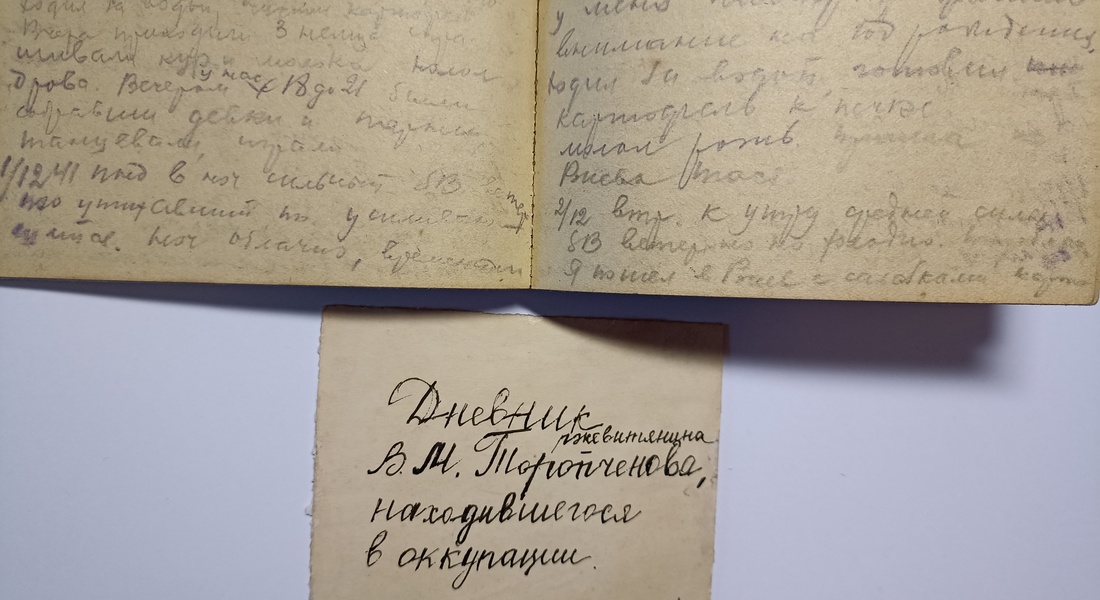 ходил за водой, чистил картофель
Вчера приходили 3 немца
шивали кур и молока колол
дрова. Вечером у нас с 18 до 21 были
собравши девки и парни
танцевали, играли
1/12 41 пнд в ноч сильный ЮВ ветер
то утихавший то усиливаю
щийся. Ноч облачно, временами
у меня
внимание на год рождения,
ходил за водой готовил
картофель к печке
молол рожь.
2/12 втр. К утру средней силы
ЮВ ветер но
Я пошел в Ржев с салазками
Дневник
ржевитянина
В. М. Торопченова,
находившегося
в оккупации.